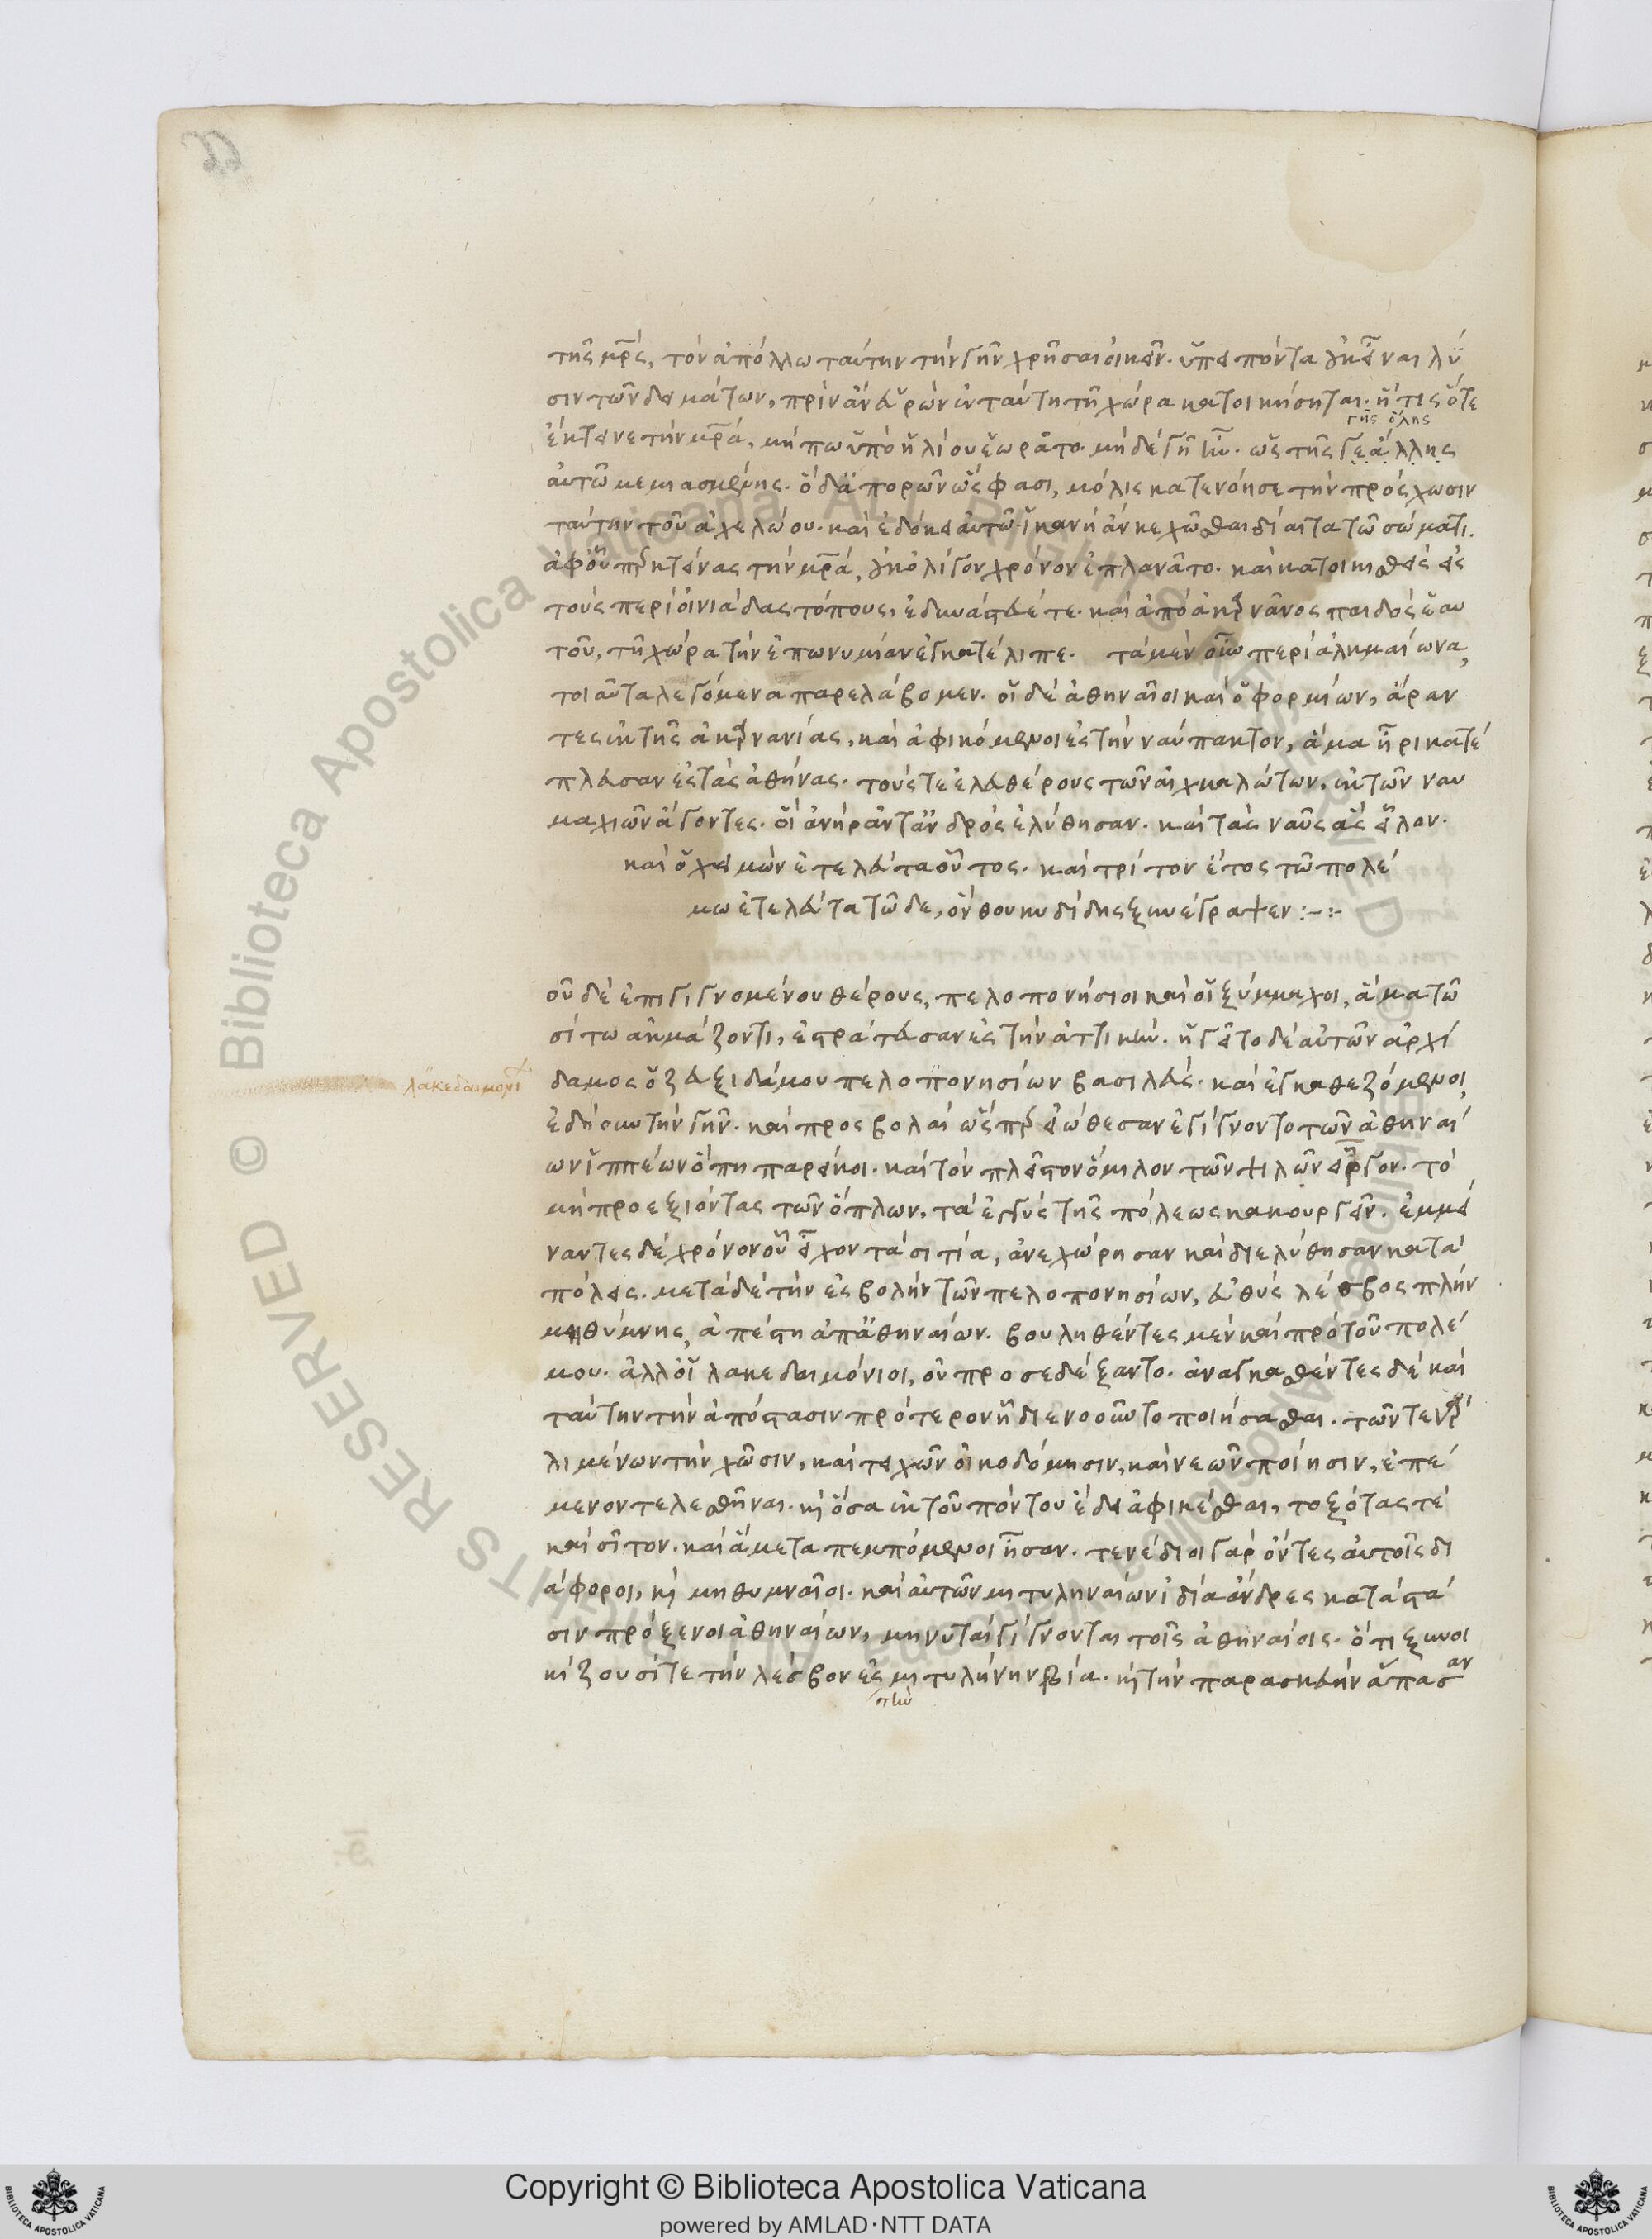 τῆς μρ̅ς, τὸν ἀπόλλω ταύτην τὴν γῆν χρῆσαι οἰκεῖν. ὑπειπόντα μὴ εἶναι λύ
σιν τῶν δειμάτων, πρὶν ἂν εὑρὼν ἐν ταύτη τῆ χώρα κατοικήσηται. ἥτις ὅτε
γῆς ὅλης
ἔκτεινε τὴν μρ̅α, μήπω ὑπὸ ἡλίου ἑωρᾶτο. μηδὲ γῆ ἦν. ὡς τῆς γε ἄλλης
αὐτῶ μεμιασμένης. ὁ δ' ἀπορῶν ὥς φασι, μόλις κατενόησε τὴν πρόσχωσιν
ταύτην τοῦ ἀχελώου. καὶ ἐδόκει αὐτῶ ἱκανὴ ἂν κεχῶσθαι δίαιτα τῶ σώματι.
ἀφ' οὗπερ κτείνας τὴν μρ̅α, οὐκ ὀλίγον χρόνον ἐπλανᾶτο. καὶ κατοικισθεὶς ἐς
τοὺς περὶ οἰνιάδας τόπους, ἐδυνάστευέ τε. καὶ ἀπὸ ἀκαρνᾶνος παιδὸς ἑαυ
τοῦ, τῆ χώρα τὴν ἐπωνυμίαν ἐγκατέλιπε. τὰ μὲν οὖν περὶ ἀλκμαίωνα,
τοιαῦτα λεγόμενα παρελάβομεν. οἱ δὲ ἀθηναῖοι καὶ ὁ φορμίων, ἄραν
τες ἐκ τῆς ἀκαρνανίας, καὶ ἀφικόμενοι ἐς τὴν ναύπακτον, ἅμα ἦρι κατέ
πλευσαν ἐς τὰς ἀθήνας. τούς τε ἐλευθέρους τῶν αἰχμαλώτων, ἐκ τῶν ναυ
μαχιῶν ἄγοντες. οἳ ἀνὴρ ἀντ' ἀνδρὸς ἐλύθησαν. καὶ τὰς ναῦς ἃς εἷλον.
καὶ ὁ χειμὼν ἐτελεύτα οὗτος. καὶ τρίτον ἔτος τῶ πολέ
μω ἐτελεύτα τῶδε, ὃν θουκυδίδης ξυνέγραψεν :-:-
οῦ δὲ ἐπιγιγνομένου θέρους, πελοπονήσιοι καὶ οἱ ξύμμαχοι, ἅμα τῶ
σίτω ἀκμάζοντι, ἐστράτευσαν ἐς τὴν ἀττικήν. ἡγεῖτο δὲ αὐτῶν ἀρχί
δαμος ὁ ζευξιδάμου πελοπονησίων βασιλεύς. καὶ ἐγκαθεζόμενοι,
ἐδήουν τὴν γῆν. καὶ προσβολαὶ ὥσπερ εἰώθεσαν ἐγίγνοντο τῶν ἀθηναί
ων ἱππέων ὅπη παρείκοι. καὶ τὸν πλεῖστον ὅμιλον τῶν ψιλῶν εἶργον. τὸ
μὴ προεξιόντας τῶν ὅπλων, τὰ ἐγγὺς τῆς πόλεως κακουργεῖν. ἐμμεί
ναντες δὲ χρόνον οὗ εἶχον τὰ σιτία, ἀνεχώρησαν καὶ διελύθησαν κατὰ
πόλεις. μετὰ δὲ τὴν ἐσβολὴν τῶν πελοπονησίων, εὐθὺς λέσβος πλὴν
μηθύμνης, ἀπέστη ἀπ' ἀθηναίων. βουληθέντες μὲν καὶ πρὸ τοῦ πολέ
μου. ἀλλ' οἱ λακεδαιμόνιοι, οὐ προσεδέξαντο. ἀναγκασθέντες δὲ καὶ
ταύτην τὴν ἀπόστασιν πρότερον ἢ διενοοῦντο ποιήσασθαι. τῶν τε γὰρ
λιμένων τὴν χῶσιν, καὶ τειχῶν οἰκοδόμησιν, καὶ νεῶν ποίησιν, ἐπέ
μενον τελεσθῆναι. κὶ ὅσα ἐκ τοῦ πόντου ἔδει ἀφικέσθαι, τοξότας τέ
καὶ σῖτον. καὶ ἃ μεταπεμπόμενοι ἦσαν. τενέδιοι γὰρ ὄντες αὐτοῖς δι
άφοροι, κὶ μηθυμναῖοι. καὶ αὐτῶν μιτυληναίων ἰδία ἄνδρες κατὰ στά
σιν πρόξενοι ἀθηναίων, μηνυταὶ γίγνονται τοῖς ἀθηναίοις. ὅτι ξυνοι
κίζουσί τε τὴν λέσβον ἐς μιτυλήνην βία. κὶ τὴν παρασκευὴν ἅπασαν
τὴν
λακεδαιμονί